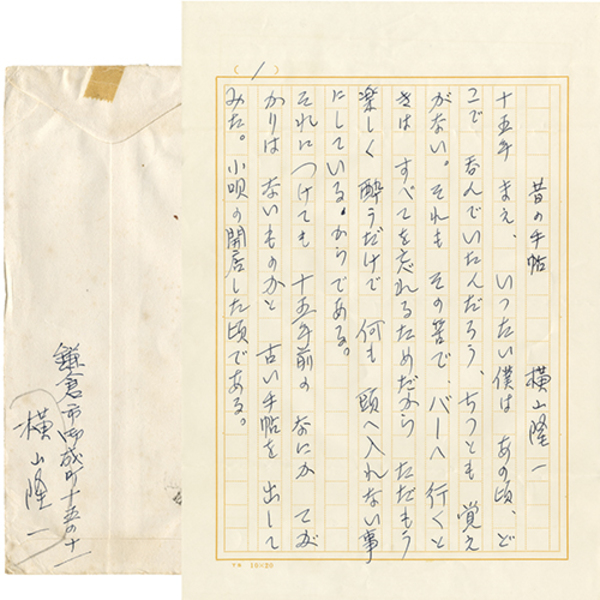 (1)
昔の手帖　横山隆一
十五年まえ、いったい僕は あの頃、ど
こで 呑んでいたんだろう、ちっとも 覚え
がない。それも その筈で、バーへ 行くと
きは すべてを忘れるためだから ただもう
楽しく 酔うだけで 何も 頭へ入れない事
にしている。からである。
それにつけても 十五年前の なにか てが
かりは ないものかと 古い手帖を 出して
みた。小唄の開店した頃である。
10×20
鎌倉市御成町十五の十一
横山隆一